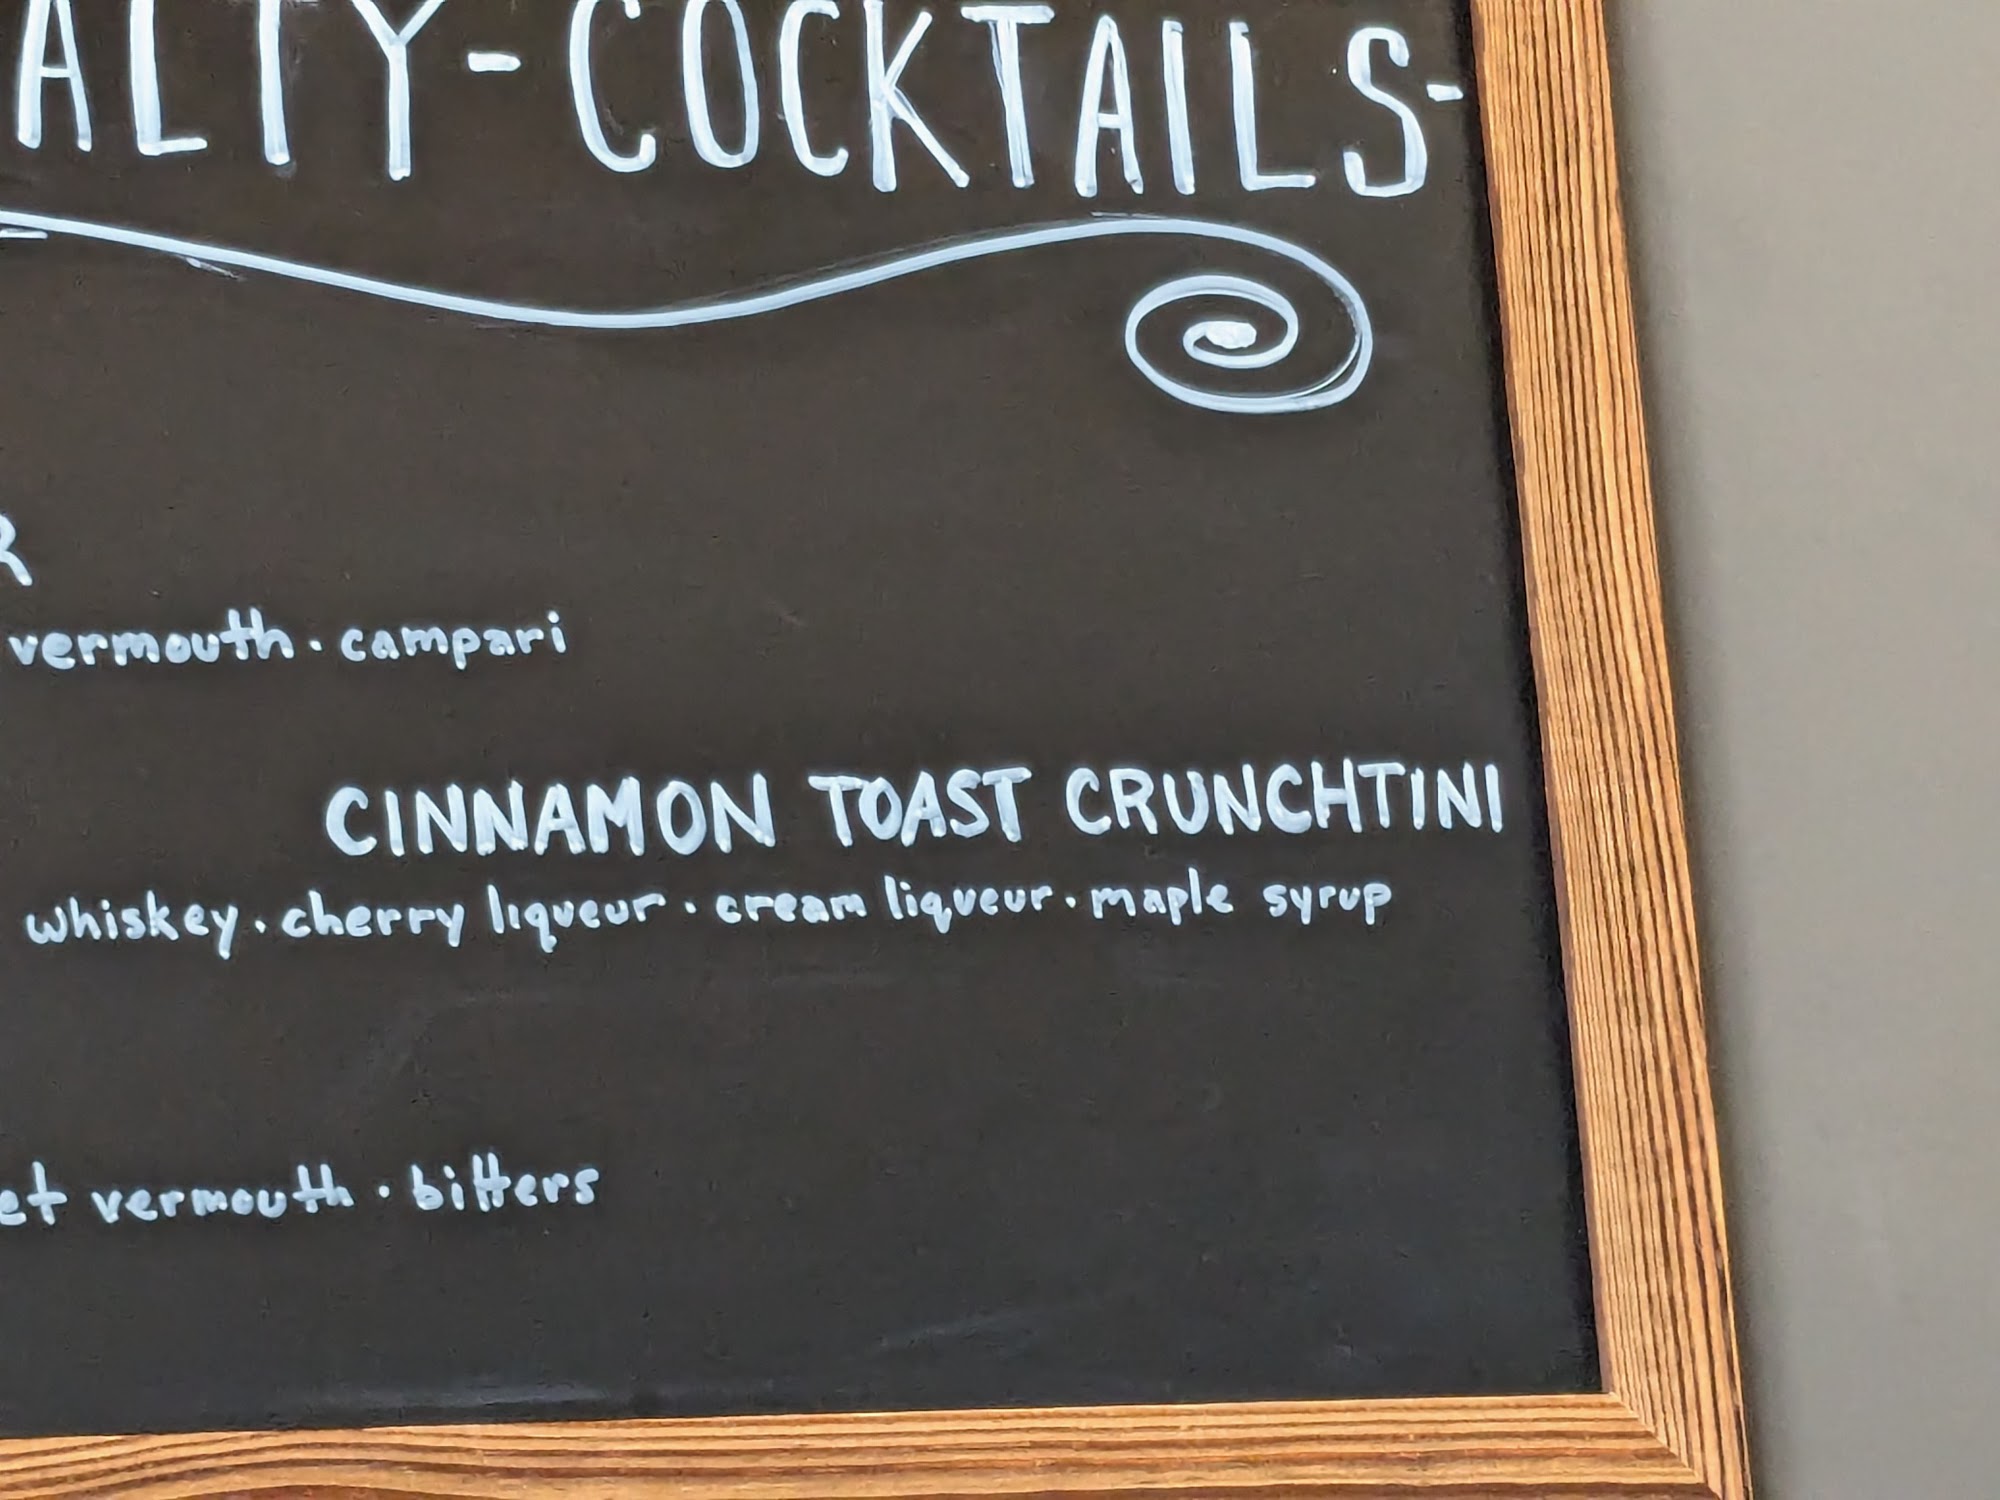 ALTY-COCKTAILS-
R
vermouth · campari
CINNAMON TOAST CRUNCHTINI
whiskey · cherry liqueur · cream liqueur · maple syrup
et vermouth · bitters